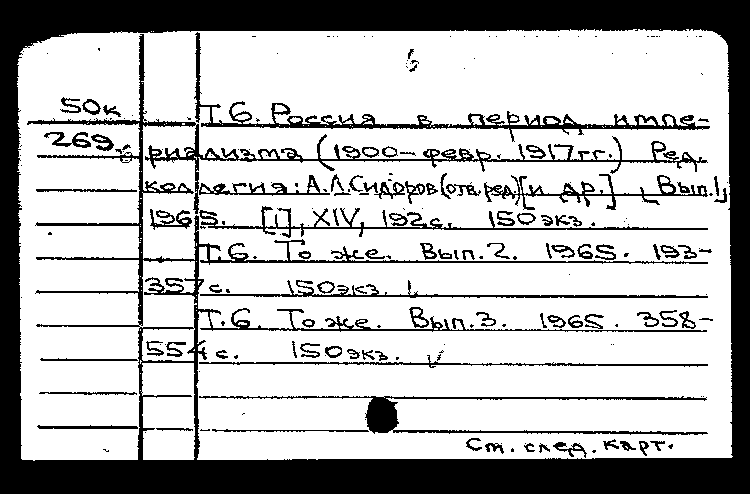 6
50к Т.6. Россия в период импе-
269 б риализма (1900-февр. 1917гг.) Ред.
коллегия: А.Л.Сидоров (отв.ред.) [и др.] Вып.1
1965. [1], XIV, 192с. 150экз.
Т.6. То же. Вып.2. 1965. 193-
357с. 150экз.
Т.6. То же. Вып.3. 1965. 358-
554с. 150экз.
См. след. карт.